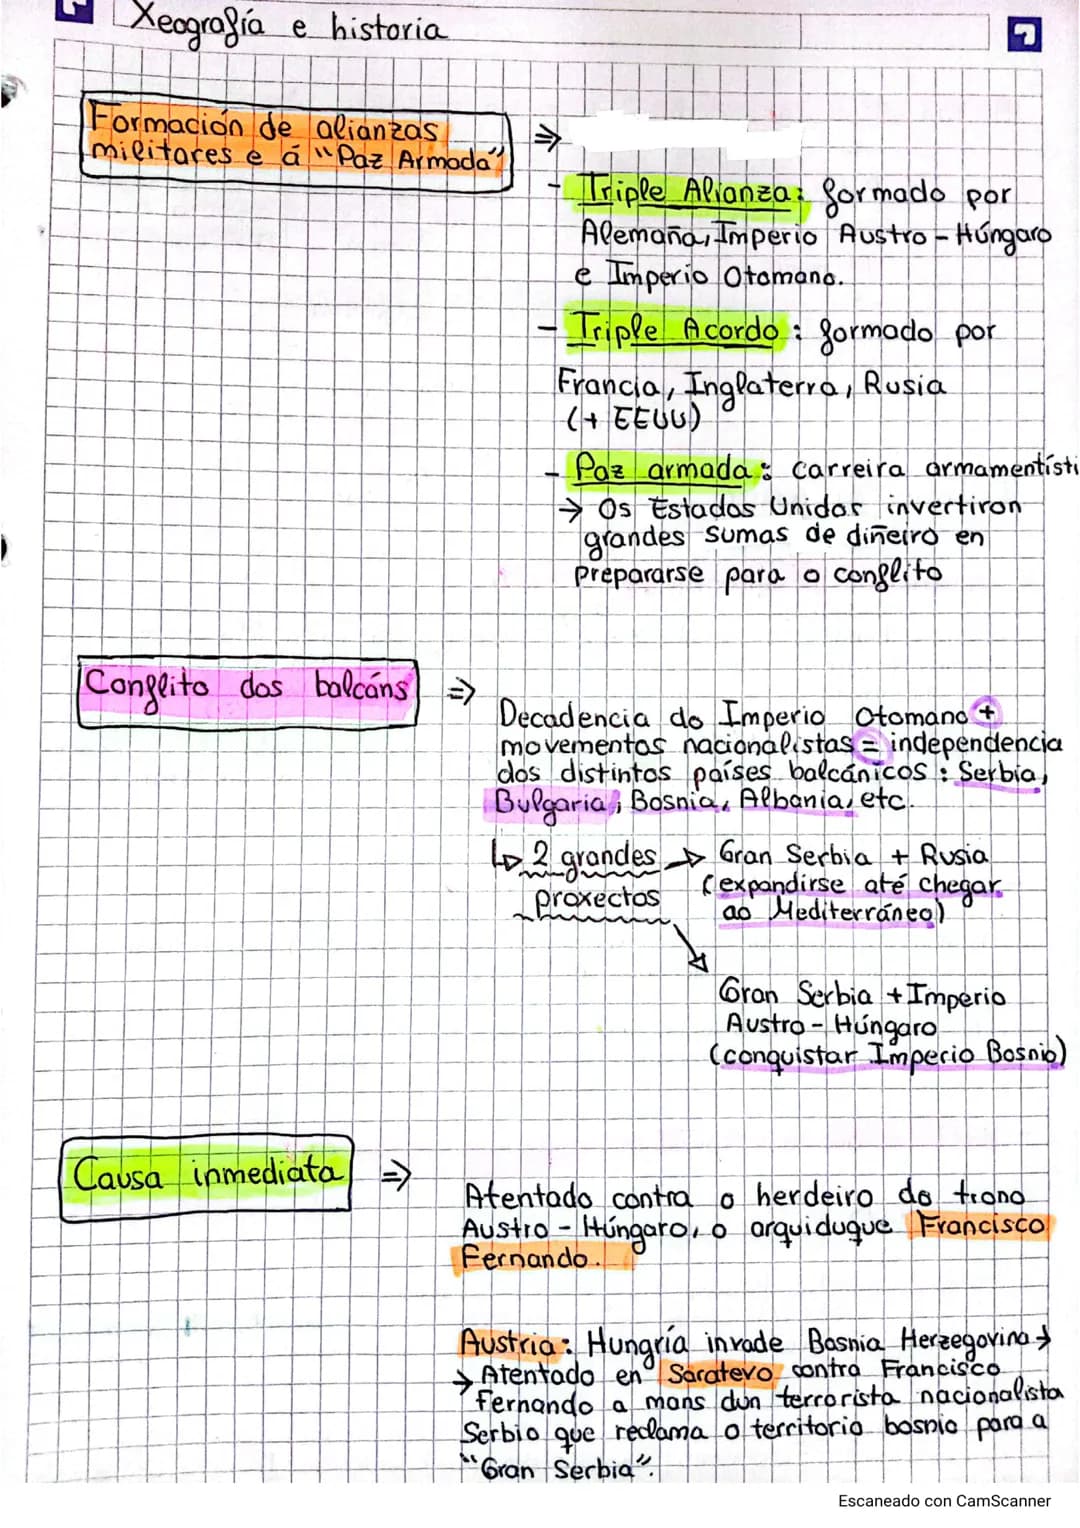 Xeografía e historia
Formación de alianzas
militares e á "Paz Armada"
⇒
- Triple Alianza: formado por
Alemaña, Imperio Austro-Húngaro
e Imperio Otomano.
- Triple Acordo: formado por
Francia, Inglaterra, Rusia
(+ EEUU)
- Paz armada: carreira armamentísti
→ Os Estados Unidos invertiron
grandes sumas de diñeiro en
prepararse para o conflito
Conflito dos balcáns
⇒
Decadencia do Imperio Otomano +
movementos nacionalistas = independencia
dos distintos países balcánicos: Serbia,
Bulgaria, Bosnia, Albania, etc.
↳ 2 grandes → Gran Serbia + Rusia
proxectos (expandirse até chegar
ao Mediterráneo)
↘
Gran Serbia + Imperio
Austro-Húngaro
(conquistar Imperio Bosnio)
Causa inmediata
⇒
Atentado contra o herdeiro do trono
Austro-Húngaro, o arquiduque Francisco
Fernando.
Austria: Hungría invade Bosnia Herzegovina →
→ Atentado en Saratevo contra Francisco
Fernando a mans dun terrorista nacionalista
Serbio que reclama o territorio bosnio para a
"Gran Serbia".
Escaneado con CamScanner